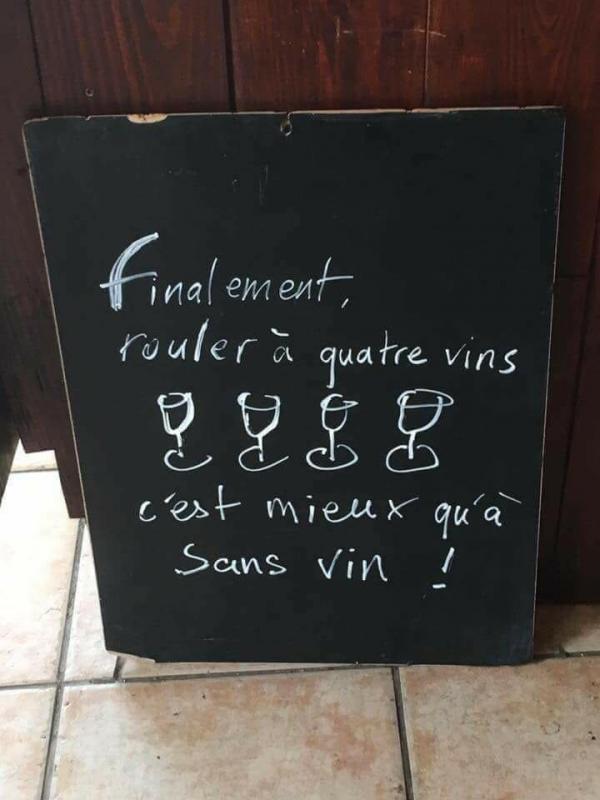 Finalement,
rouler à quatre vins
c'est mieux qu'à
Sans vin !